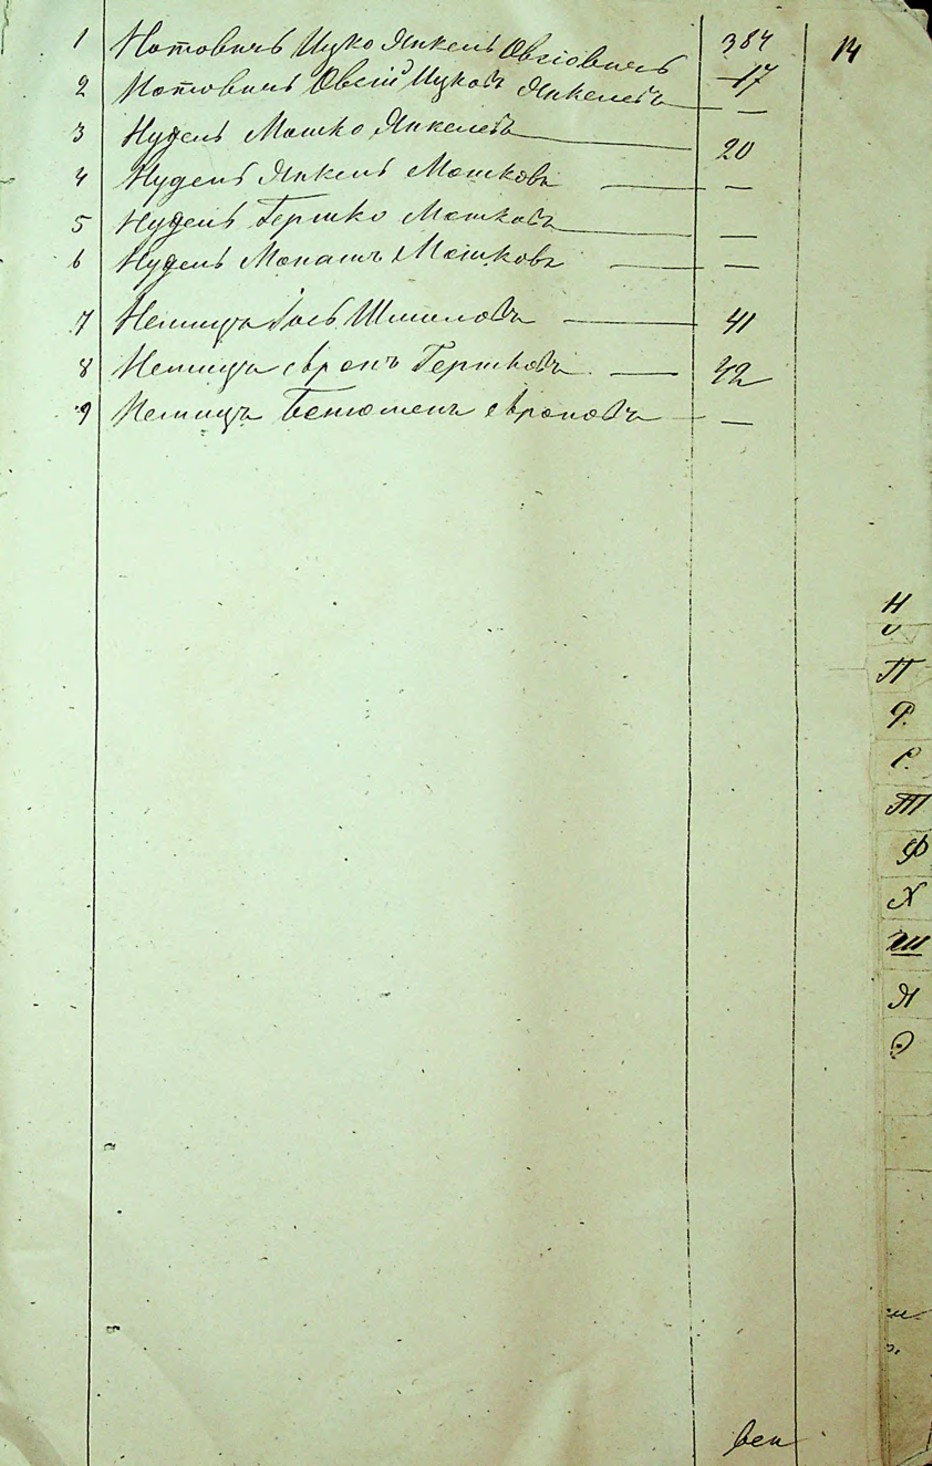 14
1 Нотовичъ Ицко Янкель Овсiовичъ 384
2 Нотовичъ Овсiй Ицковъ Янкелевъ 17 —
3 Нудель Мошко Янкелевъ 20
4 Нудель Янкель Мошковъ —
5 Нудель Гершко Мошковъ —
6 Нудель Монашъ Мошковъ —
7 Немицъ Iось Шмиловъ 41
8 Немицъ Аронъ Гершковъ 42
9 Немицъ Бенюменъ Ароновъ —
Н
П
Р.
С.
Т
Ф
Х
Ш
Я